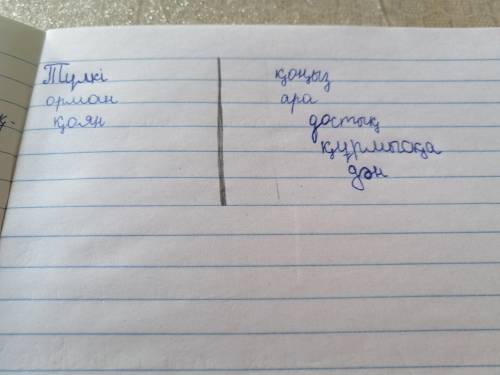 Түлкі
орман
қоян
қоңыз
ара
достық
құрмысқа
дән